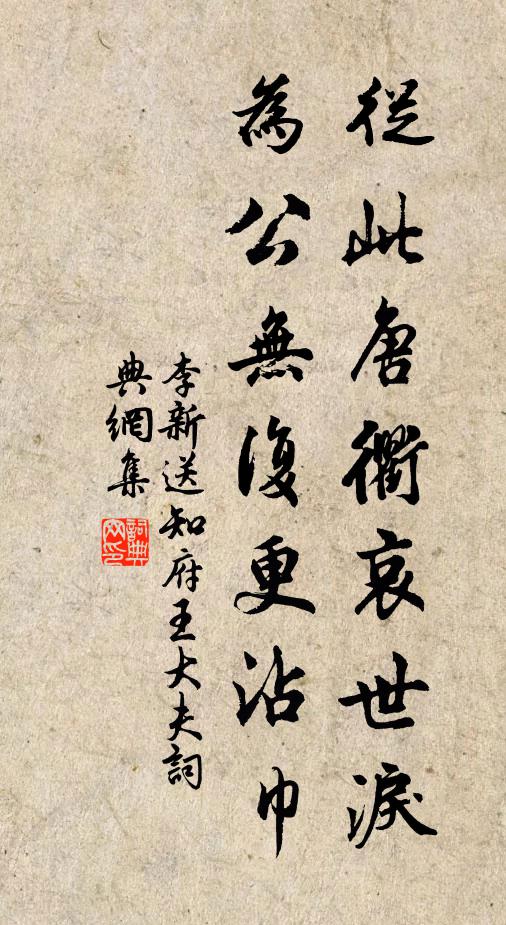 從此唐衢哀世淚
為公無復更沾巾
李新送知府王大夫詞
典網集
詞典
网印